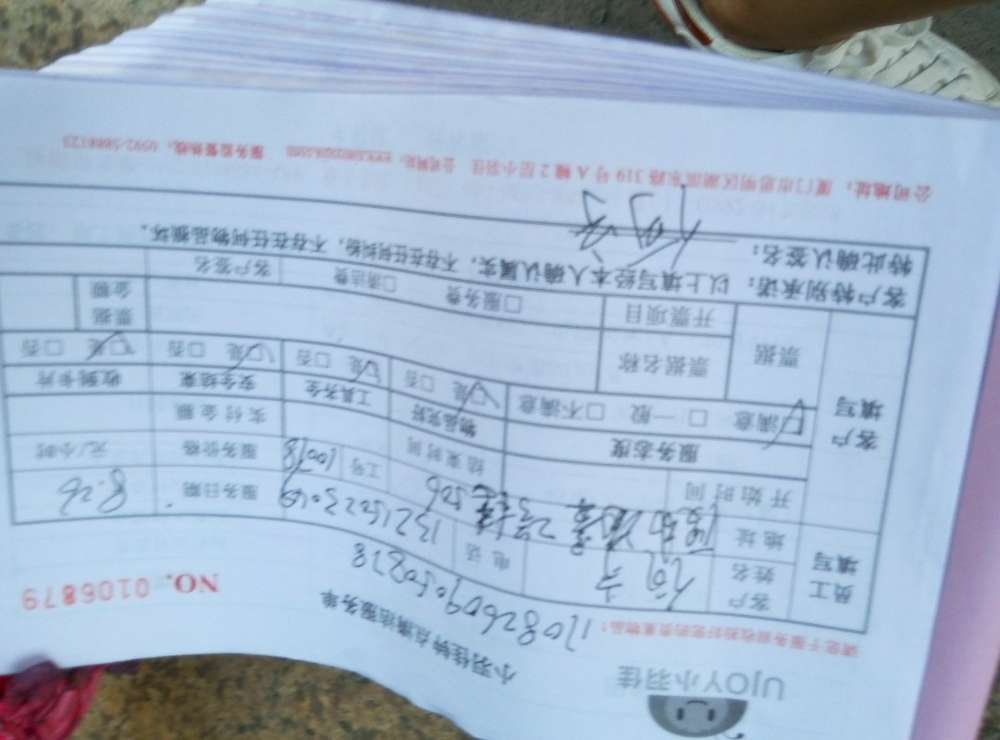 UJOY小羽佳
小羽佳钟点清洁服务单
请您于服务前收拾好您的贵重物品！
NO. 0106879
员工填写 客户姓名 何 电话 13215023069 服务日期 8.26
地址 2号楼506 工号 10078 服务价格 元/小时
开始时间 结束时间 实付金额
客户填写 服务态度 物品完好 工具齐全 安全结束 收到卡片
☑满意 □一般 □不满意 ☑是 □否 ☑是 □否 ☑是 □否 ☑是 □否
票据 票据名称 票据金额
开票项目 □服务费 □清洁费 客户签名
客户特别承诺：以上填写经本人确认属实，不存在任何纠纷，不存在任何物品损坏。
特此确认签名：何
公司地址：厦门市思明区湖滨东路319号A幢2层小羽佳 公司网址： 服务监督热线：0592-5888123